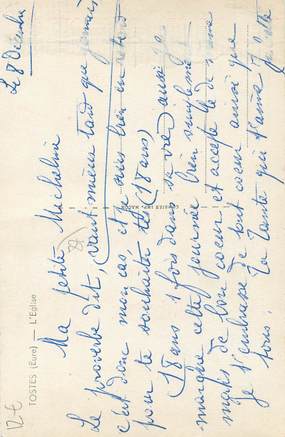 Le 8 Décembre
Ma petite Micheline
Le proverbe dit, vaut mieux tard que jamais
c'est donc mon cas et je suis bien en retard
pour te souhaiter tes (18 ans)
18 ans 1 fois dans sa vie aussi je
marque cette journée bien simplement
mais de bon coeur et accepte le de même
je t'embrasse de tout coeur ainsi que
tous. Ta Tante qui t'aime
TOSTES (Eure) — L'Eglise
12 €